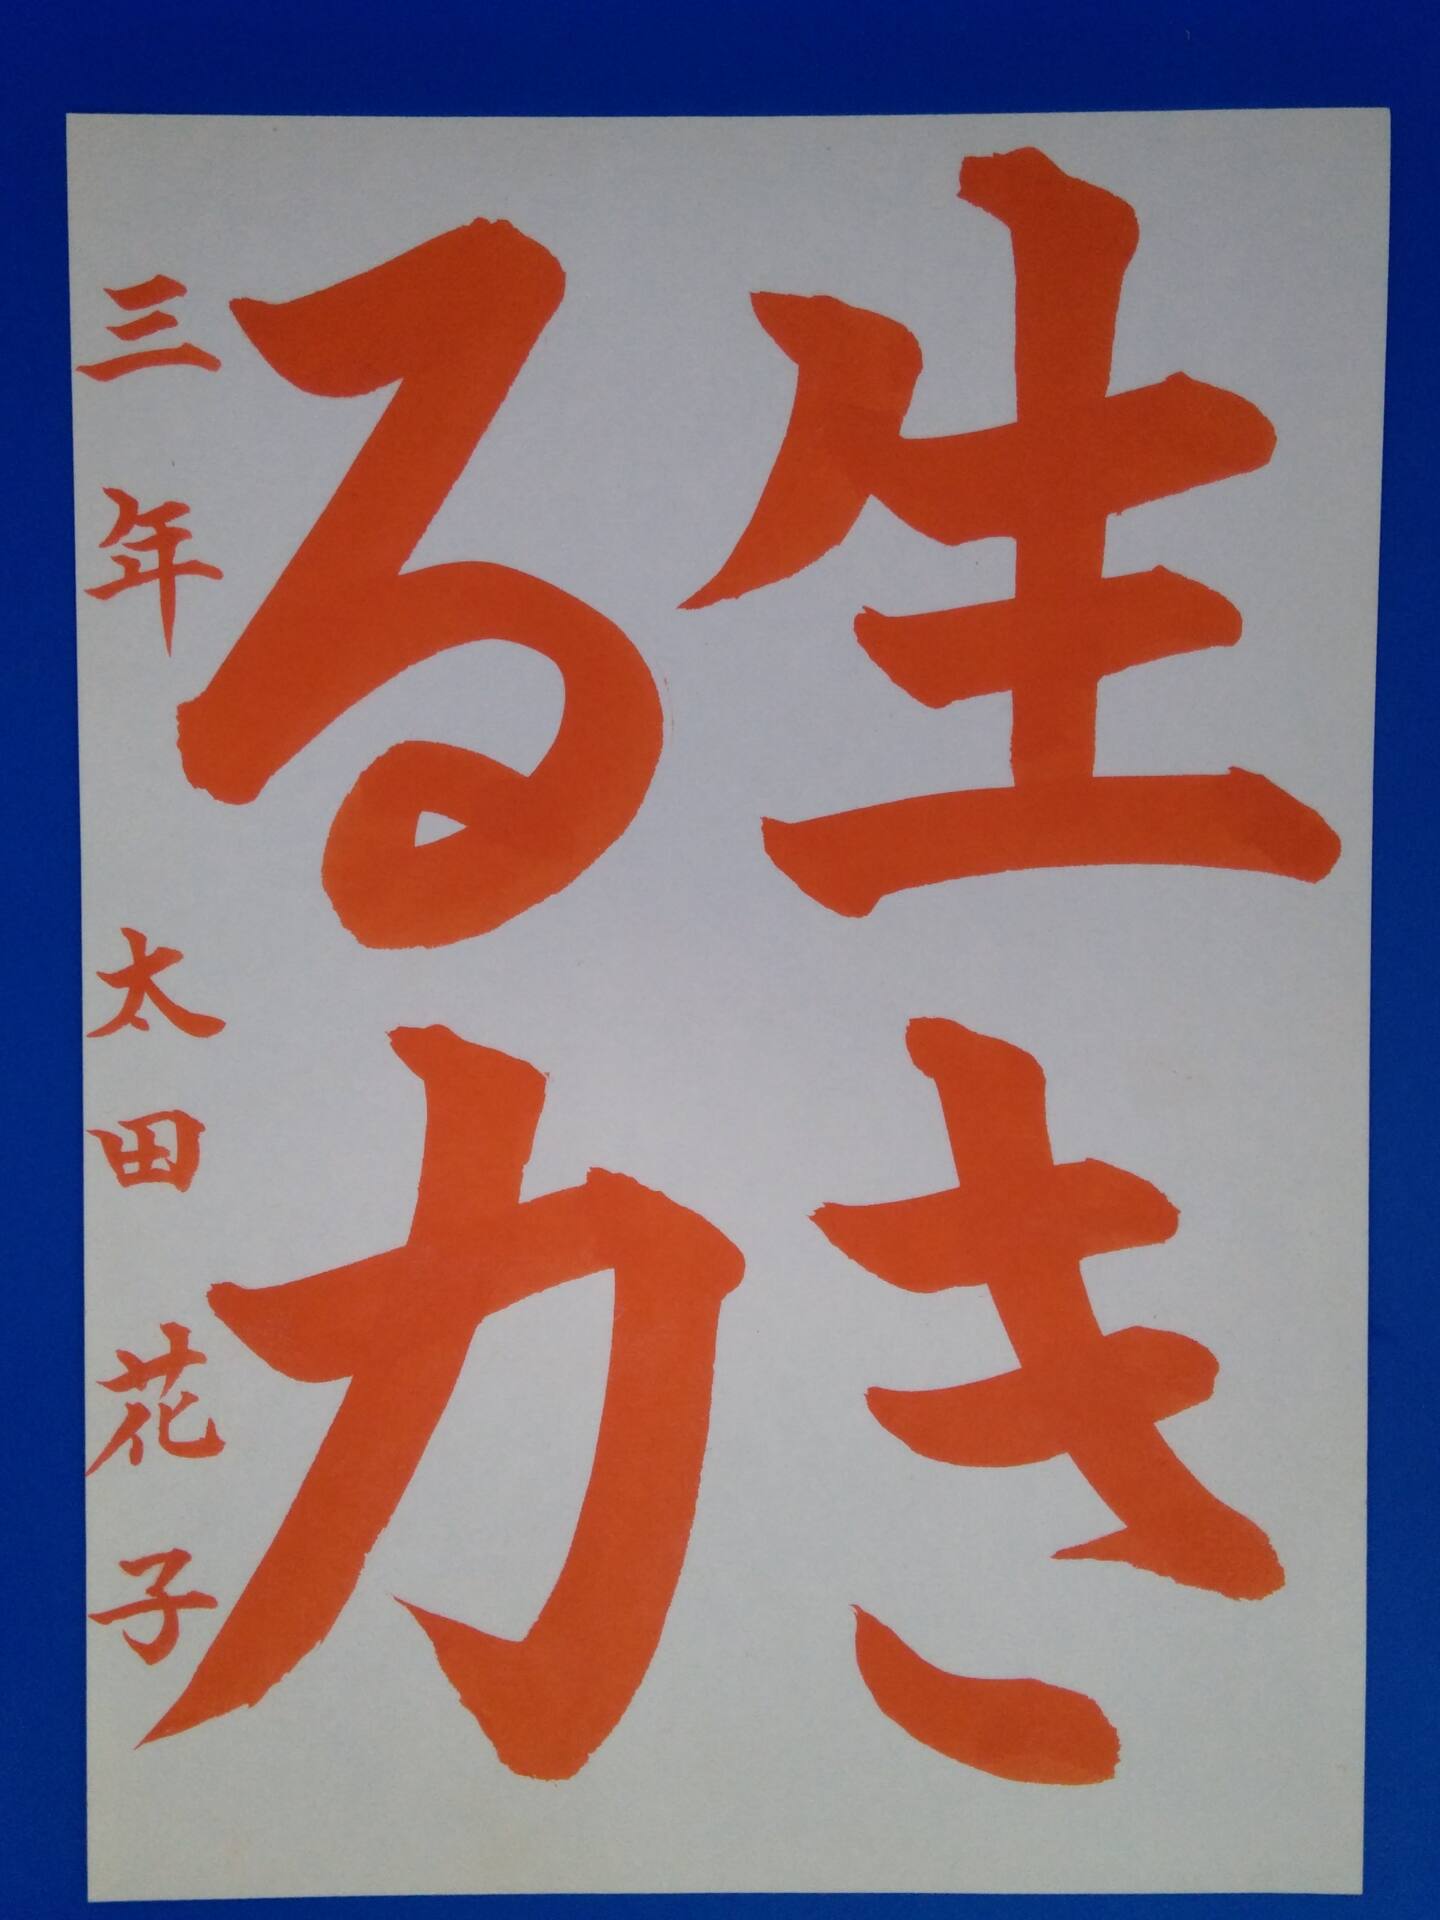 生き
る力
三年 太田花子